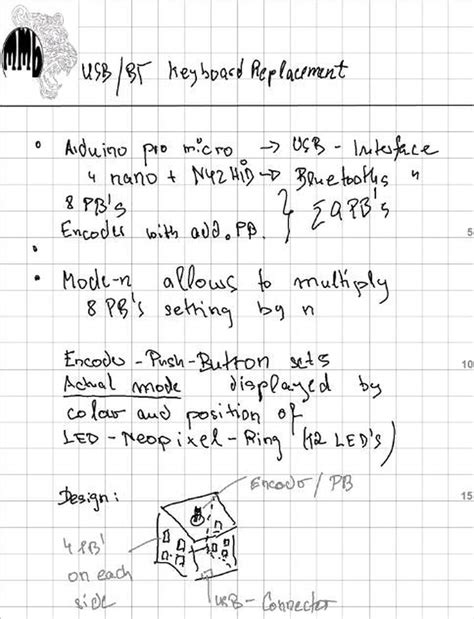 mmb
USB/BT Keyboard Replacement
• Arduino pro micro → USB - Interface
" nano + N42HID → Bluetooths "
8 PB's
Encoder with add. PB. } Σ 9 PB's
5
• Mode-n allows to multiply
8 PB's setting by n
Encoder - Push - Button sets
10
Actual mode displayed by
colour and position of
LED - Neopixel - Ring (12 LED's)
Encoder / PB
15
Design:
4 PB'
on each
side
USB - Connector